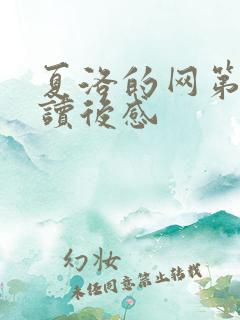 夏洛的网第
讀後感
幻妆
未经同意禁止转载